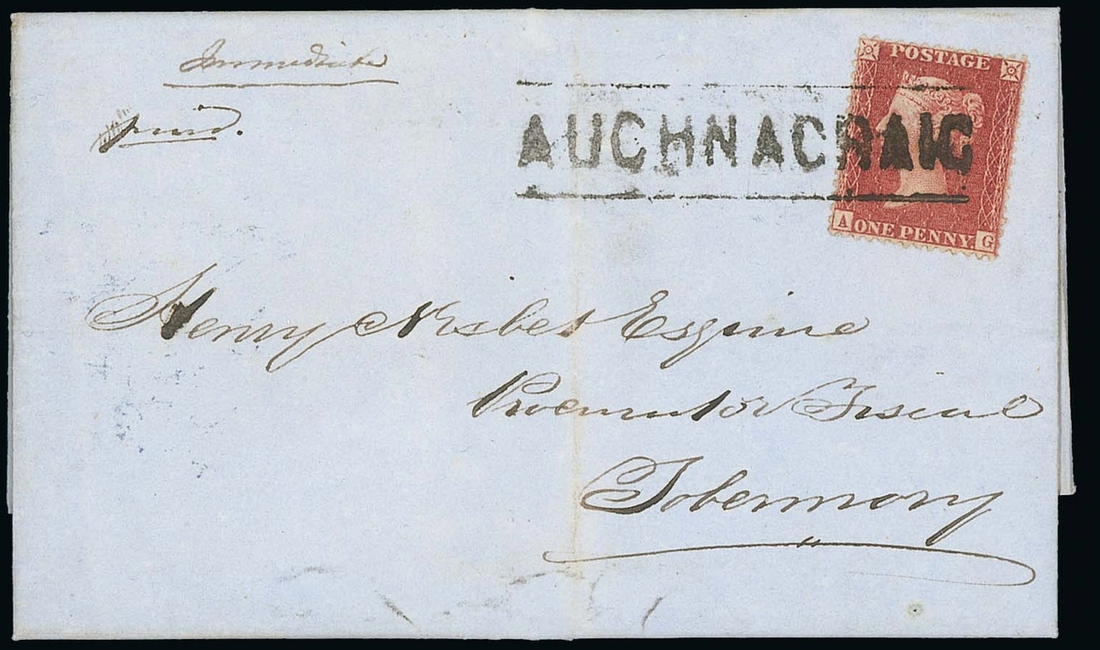 Immediate
paid.
POSTAGE
AUCHNACRAIG
A ONE PENNY. G
Henry Nisbet Esquire
Procurator Fiscal
Tobermory